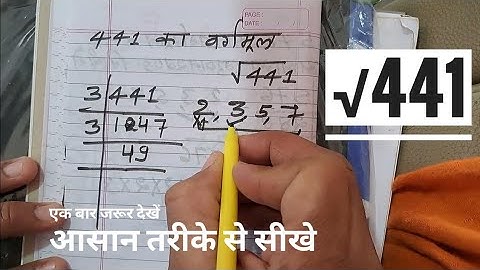 PAGE:
DATE:
441 का वर्गमूल
√441
√441
3 | 441
3 | 147
49
2, 3, 5, 7
एक बार जरूर देखें
आसान तरीके से सीखे